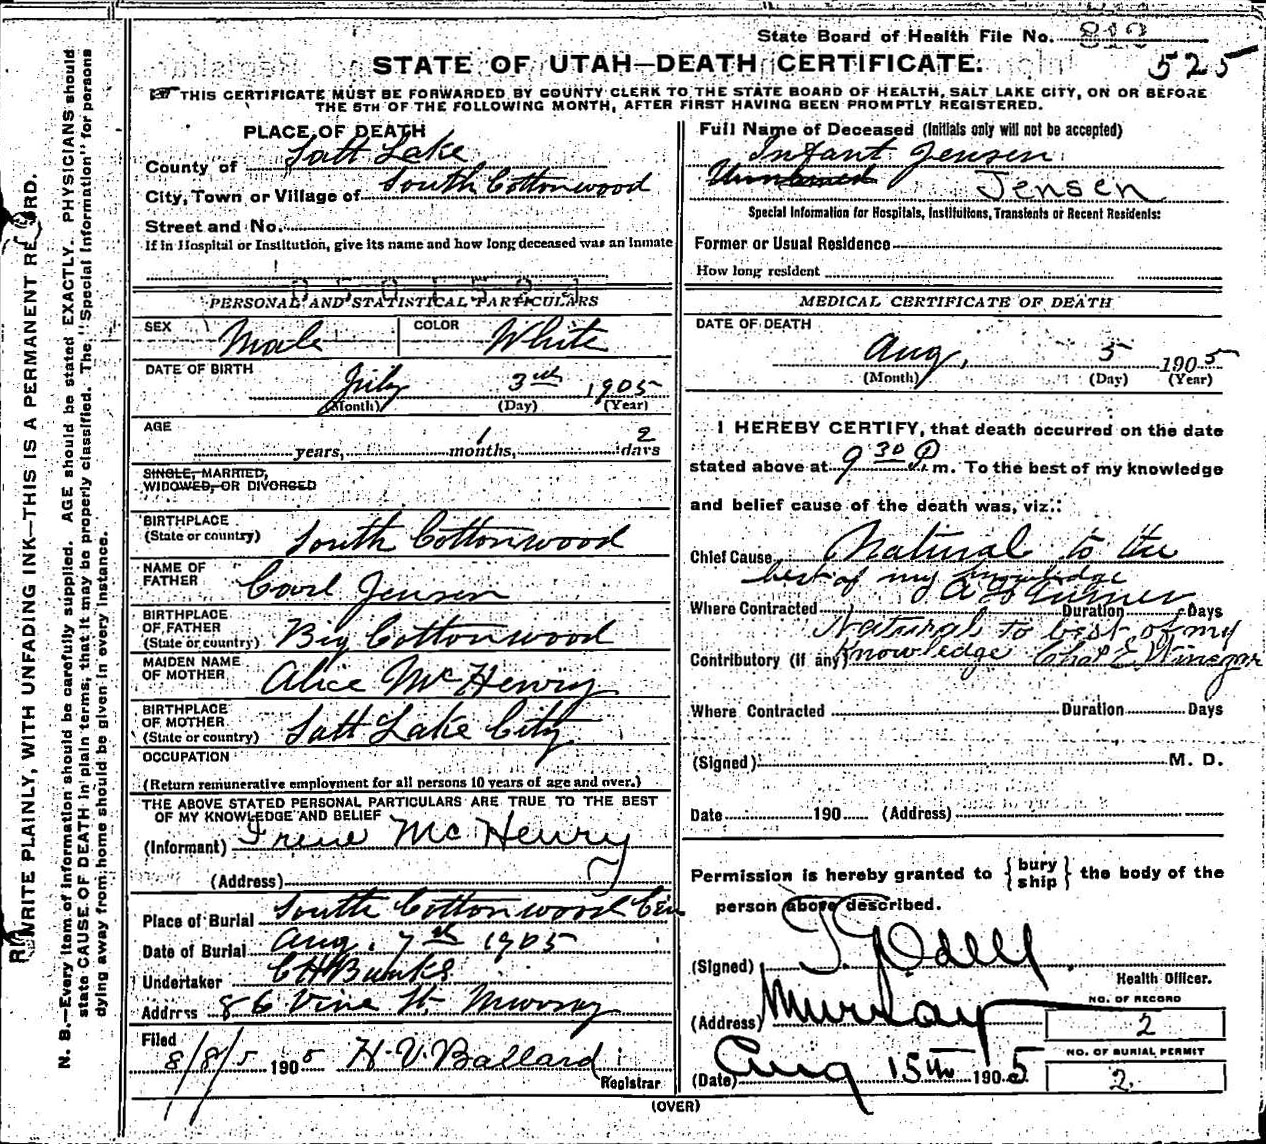 State Board of Health File No. 813
525
STATE OF UTAH—DEATH CERTIFICATE.
THIS CERTIFICATE MUST BE FORWARDED BY COUNTY CLERK TO THE STATE BOARD OF HEALTH, SALT LAKE CITY, ON OR BEFORE
THE 5TH OF THE FOLLOWING MONTH, AFTER FIRST HAVING BEEN PROMPTLY REGISTERED.
PLACE OF DEATH
County of Salt Lake
City, Town or Village of South Cottonwood
Street and No.
If in Hospital or Institution, give its name and how long deceased was an Inmate
PERSONAL AND STATISTICAL PARTICULARS
SEX Male COLOR White
DATE OF BIRTH
July 3rd 1905
(Month) (Day) (Year)
AGE
years, 1 months, 2 days
SINGLE, MARRIED,
WIDOWED, OR DIVORCED
BIRTHPLACE
(State or country) South Cottonwood
NAME OF
FATHER Carl Jensen
BIRTHPLACE
OF FATHER
(State or country) Big Cottonwood
MAIDEN NAME
OF MOTHER Alice McHenry
BIRTHPLACE
OF MOTHER
(State or country) Salt Lake City
OCCUPATION
(Return remunerative employment for all persons 10 years of age and over.)
THE ABOVE STATED PERSONAL PARTICULARS ARE TRUE TO THE BEST
OF MY KNOWLEDGE AND BELIEF
(Informant) Irene McHenry
(Address)
Place of Burial South Cottonwood Cem
Date of Burial Aug. 7th 1905
Undertaker
Address 86 Vine St. Murray
Filed
8/8/5 1905 H. V. Ballard
Registrar
Full Name of Deceased (Initials only will not be accepted)
Infant Jensen
Unnamed Jensen
Special Information for Hospitals, Institutions, Transients or Recent Residents:
Former or Usual Residence
How long resident
MEDICAL CERTIFICATE OF DEATH
DATE OF DEATH
Aug. 5 1905
(Month) (Day) (Year)
I HEREBY CERTIFY, that death occurred on the date
stated above at 9 30 P. m. To the best of my knowledge
and belief cause of the death was, viz.:
Chief Cause Natural to the
best of my knowledge
Where Contracted Duration Days
Natural to best of my
Contributory (if any) Knowledge Chas E Winegar
Where Contracted Duration Days
(Signed) M. D.
Date 190 (Address)
Permission is hereby granted to {bury ship} the body of the
person above described.
(Signed)
Health Officer.
(Address) Murray
(Date) Aug 15th 1905
NO. OF RECORD
2
NO. OF BURIAL PERMIT
2.
(OVER)
WRITE PLAINLY, WITH UNFADING INK—THIS IS A PERMANENT RECORD.
N. B.—Every item of information should be carefully supplied. AGE should be stated EXACTLY. PHYSICIANS should
state CAUSE OF DEATH in plain terms, that it may be properly classified. The "Special Information" for persons
dying away from home should be given in every instance.